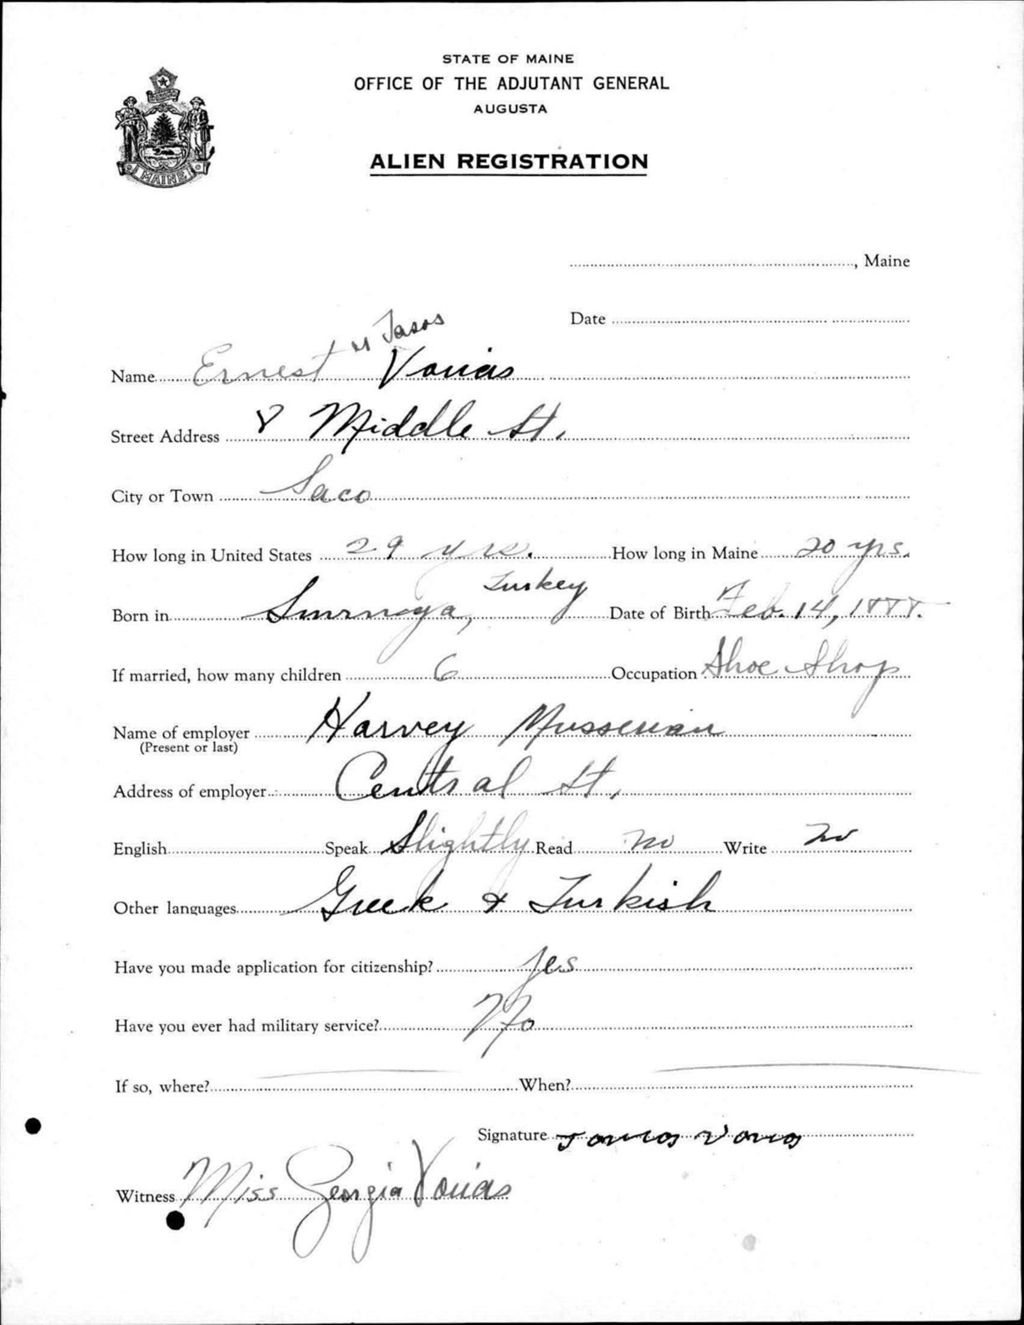 STATE OF MAINE
OFFICE OF THE ADJUTANT GENERAL
AUGUSTA
ALIEN REGISTRATION
MAINE
, Maine
Date
Name Ernest " Tasos Vouias
Street Address 8 Middle St.
City or Town Saco
How long in United States 29 yrs. How long in Maine 20 yrs.
Born in Smrnoya, Turkey Date of Birth Feb. 14, 1888.
If married, how many children 6 Occupation Shoe Shop
Name of employer Harvey
(Present or last)
Address of employer Central St.
English Speak Slightly Read no Write no
Other languages Greek & Turkish
Have you made application for citizenship? yes
Have you ever had military service? No
If so, where? When?
Signature
Witness Miss Georgia Vouias